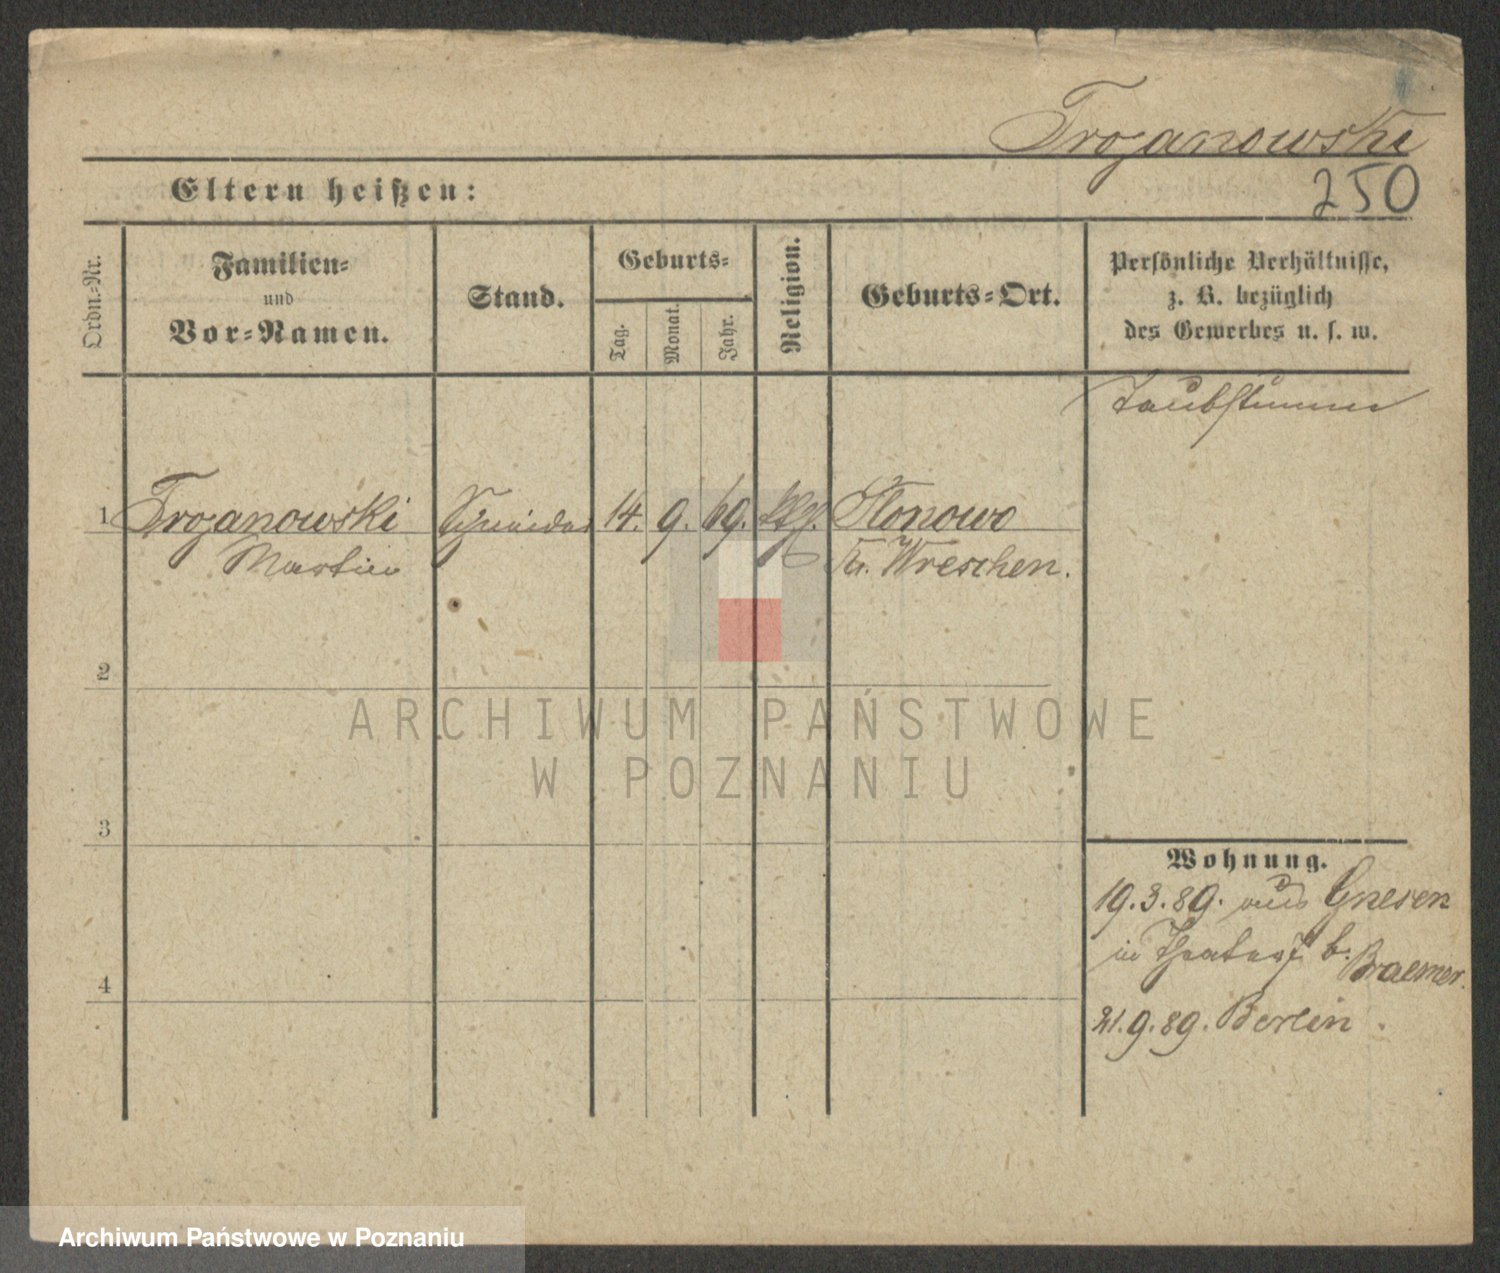 Trojanowski
250
Eltern heißen:
Ordn.-Nr.
Familien-
und
Vor-Namen.
Stand.
Geburts-
Tag.
Monat.
Jahr.
Religion.
Geburts-Ort.
Persönliche Verhältnisse,
z. B. bezüglich
des Gewerbes u. s. w.
Taubstumm
1 Trojanowski Schneider 14. 9. 69.
Martin Kr. Wreschen.
2
3
4
Wohnung.
19.3.89. aus Gnesen
in b. Braemer.
21.9.89. Berlin.
ARCHIWUM PAŃSTWOWE
W POZNANIU
Archiwum Państwowe w Poznaniu